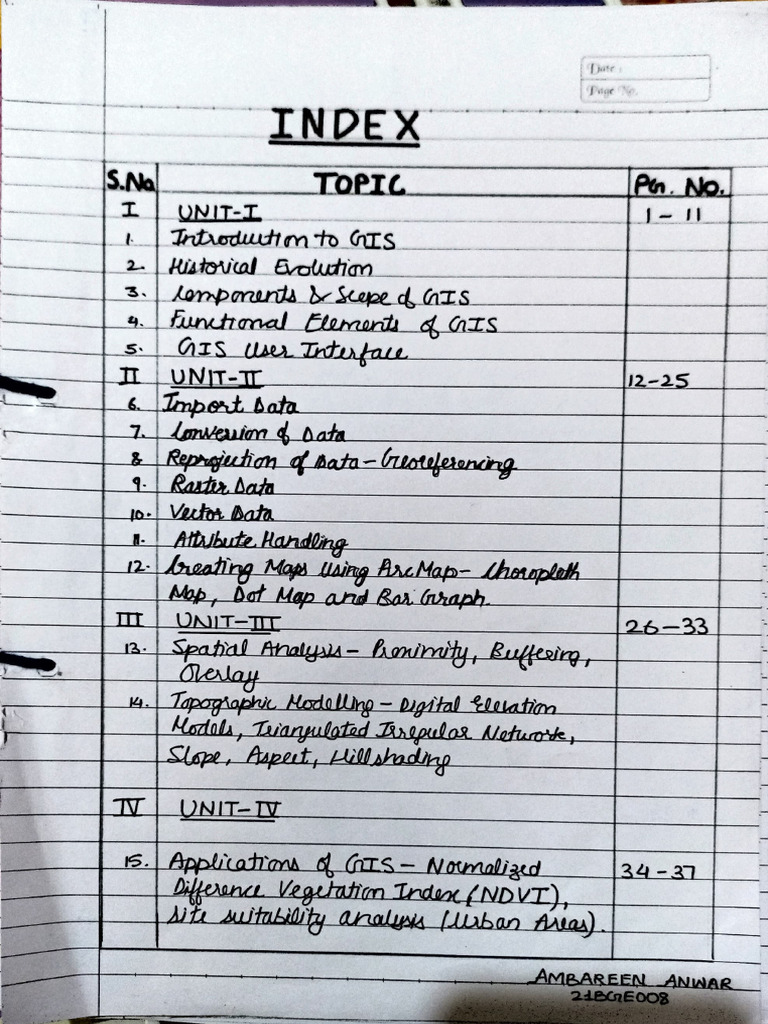 Date :
Page No.
INDEX
S.No TOPIC PG. No.
I UNIT-I 1-11
1. Introduction to GIS
2. Historical Evolution
3. Components & Scope of GIS
4. Functional Elements of GIS
5. GIS User Interface
II UNIT-II 12-25
6. Import Data
7. Conversion of Data
8 Reprojection of Data-Georeferencing
9. Raster Data
10. Vector Data
11. Attribute Handling
12. Creating Maps using ArcMap- Choropleth
Map, Dot Map and Bar Graph.
III UNIT-III 26-33
13. Spatial Analysis- Proximity, Buffering,
Overlay
14. Topographic Modelling - Digital Elevation
Models, Triangulated Irregular Network,
Slope, Aspect, Hillshading
IV UNIT-IV
15. Applications of GIS - Normalized 34-37
Difference Vegetation Index (NDVI),
Site suitability analysis (Urban Areas).
AMBAREEN ANWAR
21BGE008